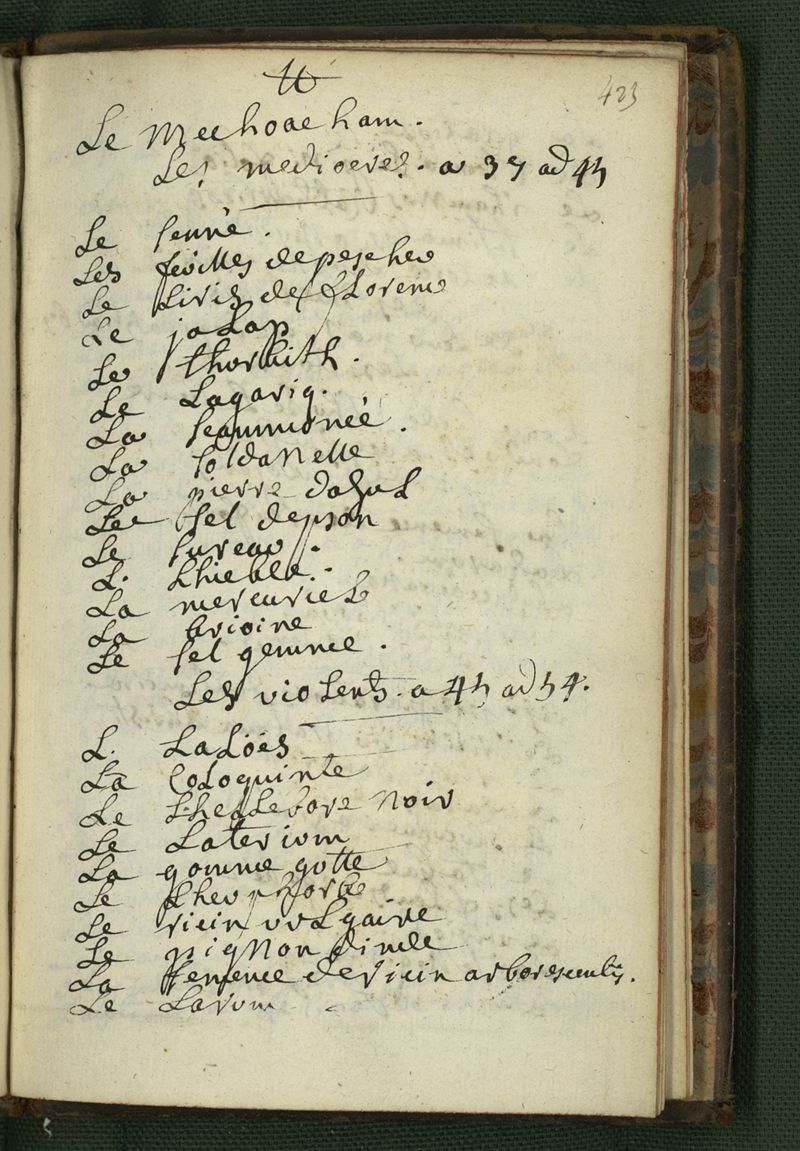 423
Le Mechoacham.
Les mediocres. a 37 ad 45
Le senné.
Les feuilles de pescher
Le Liris de florence
Le jalap
Le thorbith.
Le Lagariq.
La scammonée.
La soldanelle
La pierre dazul
Le sel depson
Le sureau.
L. Lhieble.
La mercuriel
La brioine
Le sel gemme.
Les violents. a 45 ad 54.
L. Laloës
La Coloquinte
Le Lhellebore noir
Le Laterium
La gomme gutte
Le Lheuphorbe
Le ricin vulgaire
Le pignon dinde
La semence de ricin arborescentis.
Le Larum